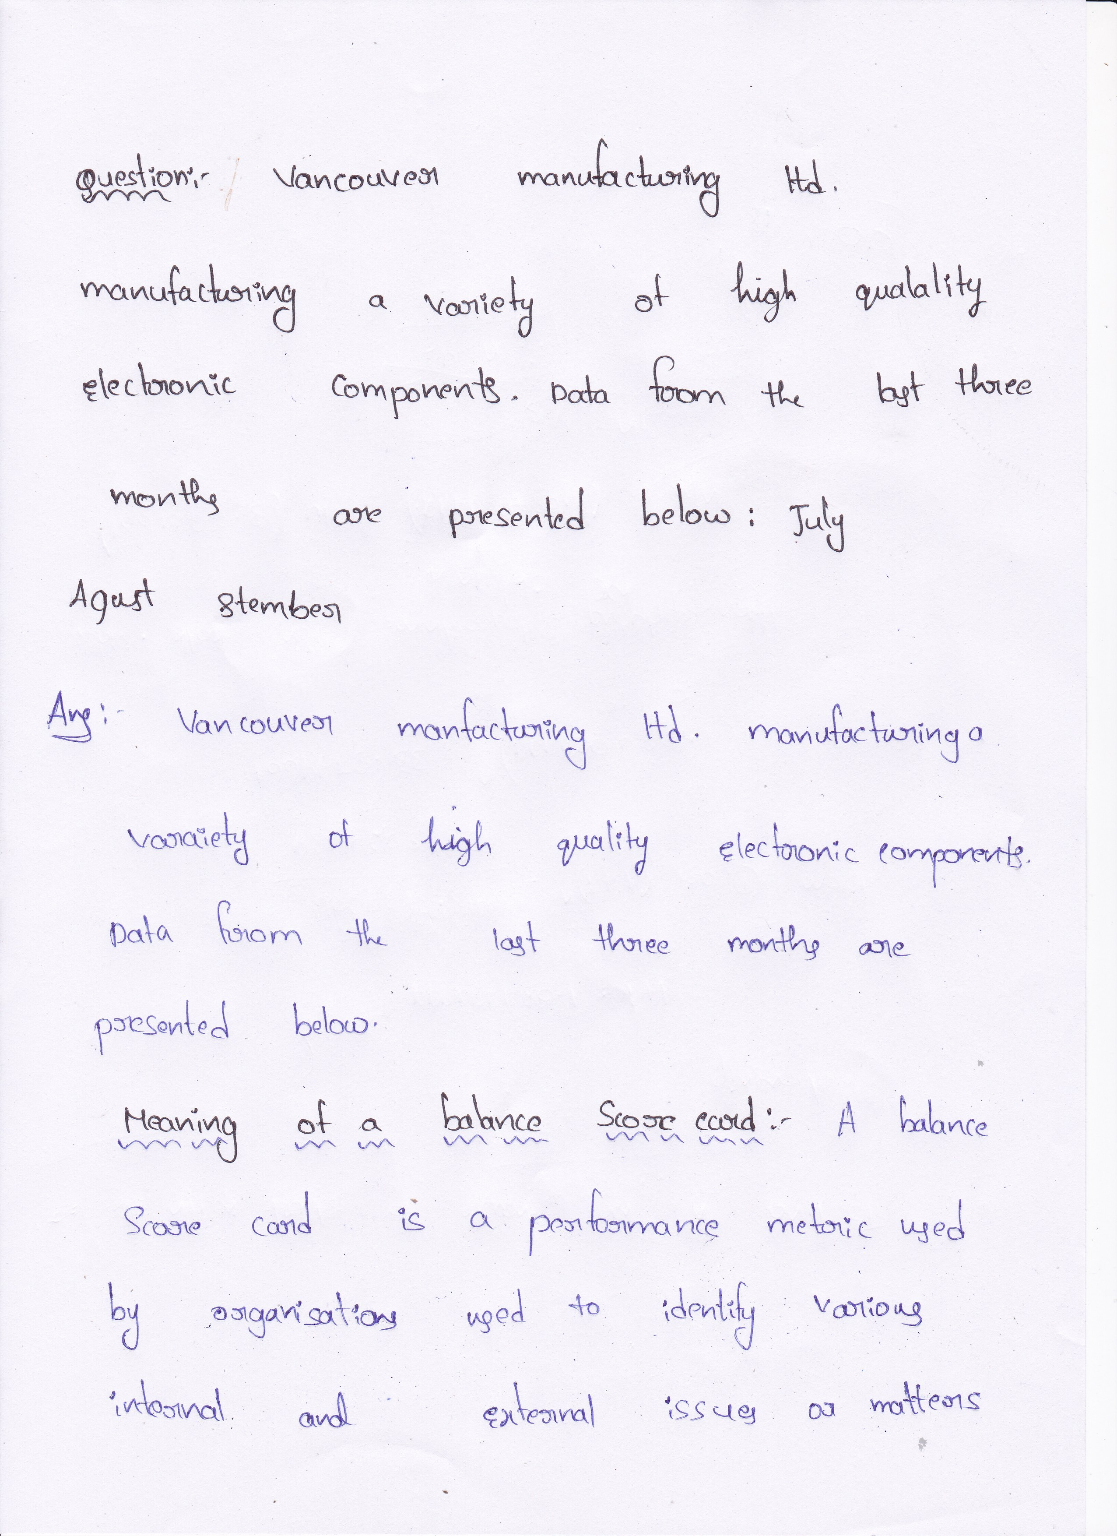 Question:- Vancouver manufacturing ltd.
manufacturing a variety of high qualality
electronic components. Data from the last three
months are presented below: July
Agust Stember
Ans:- Vancouver manfacturing ltd. manufacturing a
varaiety of high quality electronic components.
Data from the last three months are
presented below.
Meaning of a balance Score card:- A balance
Score card is a performance metric used
by organisations used to identify various
internal and external issues or matters